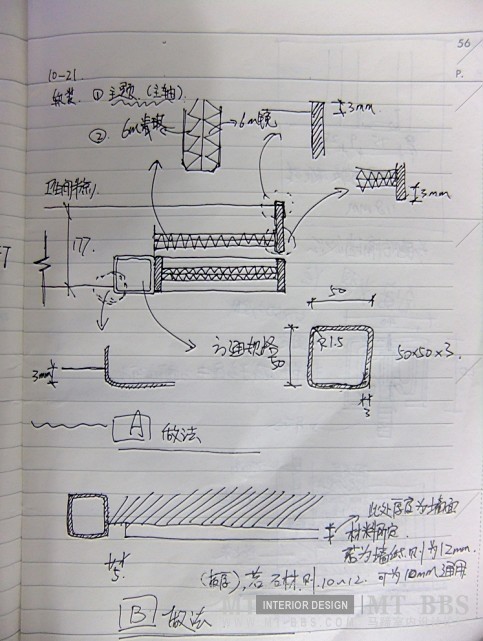 56
P.
10-21.
软装. ① 主题 (主轴)
② 6m 6m镜
3mm
3mm
卫生间
177.
50
方通规格
50
R1.5
50×50×3.
3mm
3
A 做法
此处厚度为墙面
材料所定.
若为墙纸则为12mm.
5
若石材则10~12. 可为10mm通用
B 做法
INTERIOR DESIGN
MT-BBS